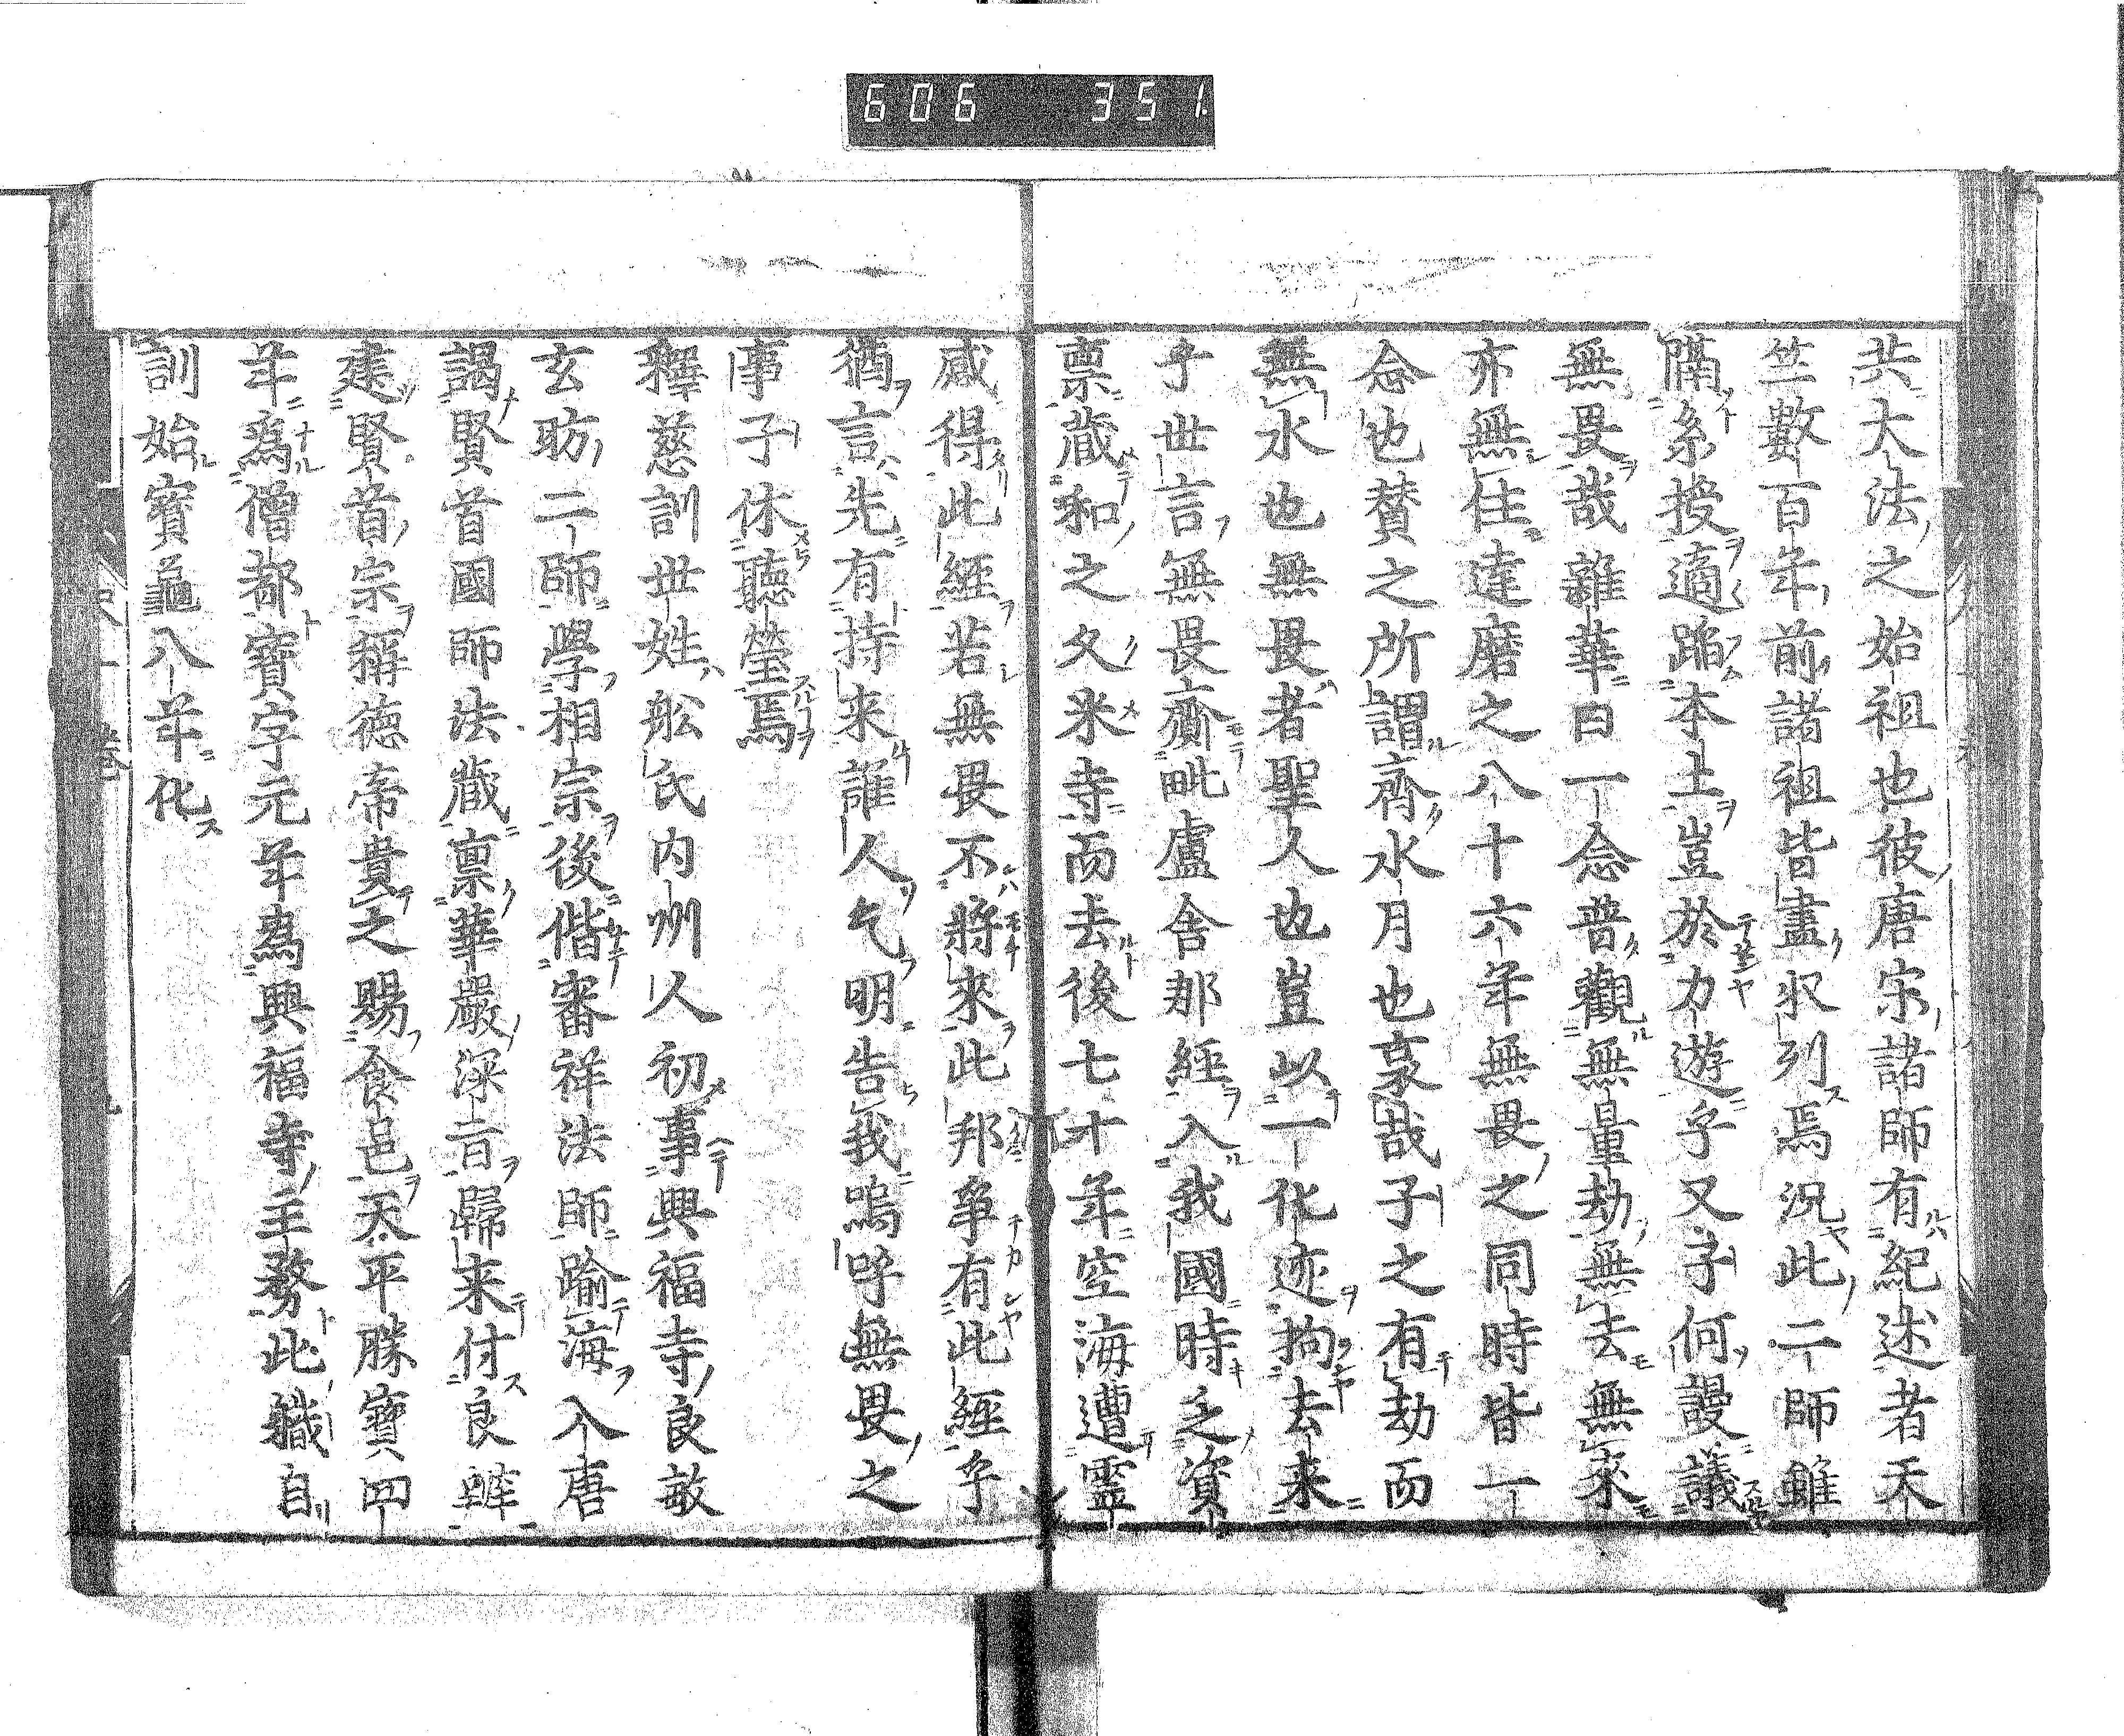 606 351.
共大法之始祖也彼唐宋諸師有紀述者天
竺數百年前諸祖皆盡収列焉況此二師雖
隔系授適跪本土豈於力遊乎又子何謾議
無畏哉雜華曰一念普觀無量劫無去無來
亦無住達磨之八十六年無畏之同時皆一
念也賛之所謂齊水月也哀哉子之有劫而
無水也無畏者聖人也豈以一化迹拘去来
乎世言無畏齎毗盧舍那經入我國時之資
禀蔵和之久米寺而去後七十年空海遭靈
感得此經若無畏不將來此邦爭有此經乎
猶言先有持来誰人乞明告我嗚呼無畏之
事子休聽瑩焉
釋慈訓世姓舩氏内州人初事興福寺良敏
玄昉二師學相宗後偕審祥法師踰海入唐
謁賢首國師法蔵禀華嚴深旨歸来付良辨
建賢首宗稱德帝貴之賜食邑天平勝寶四
年爲僧都寶字元年爲興福寺主務此職自
訓始寶龜八年化